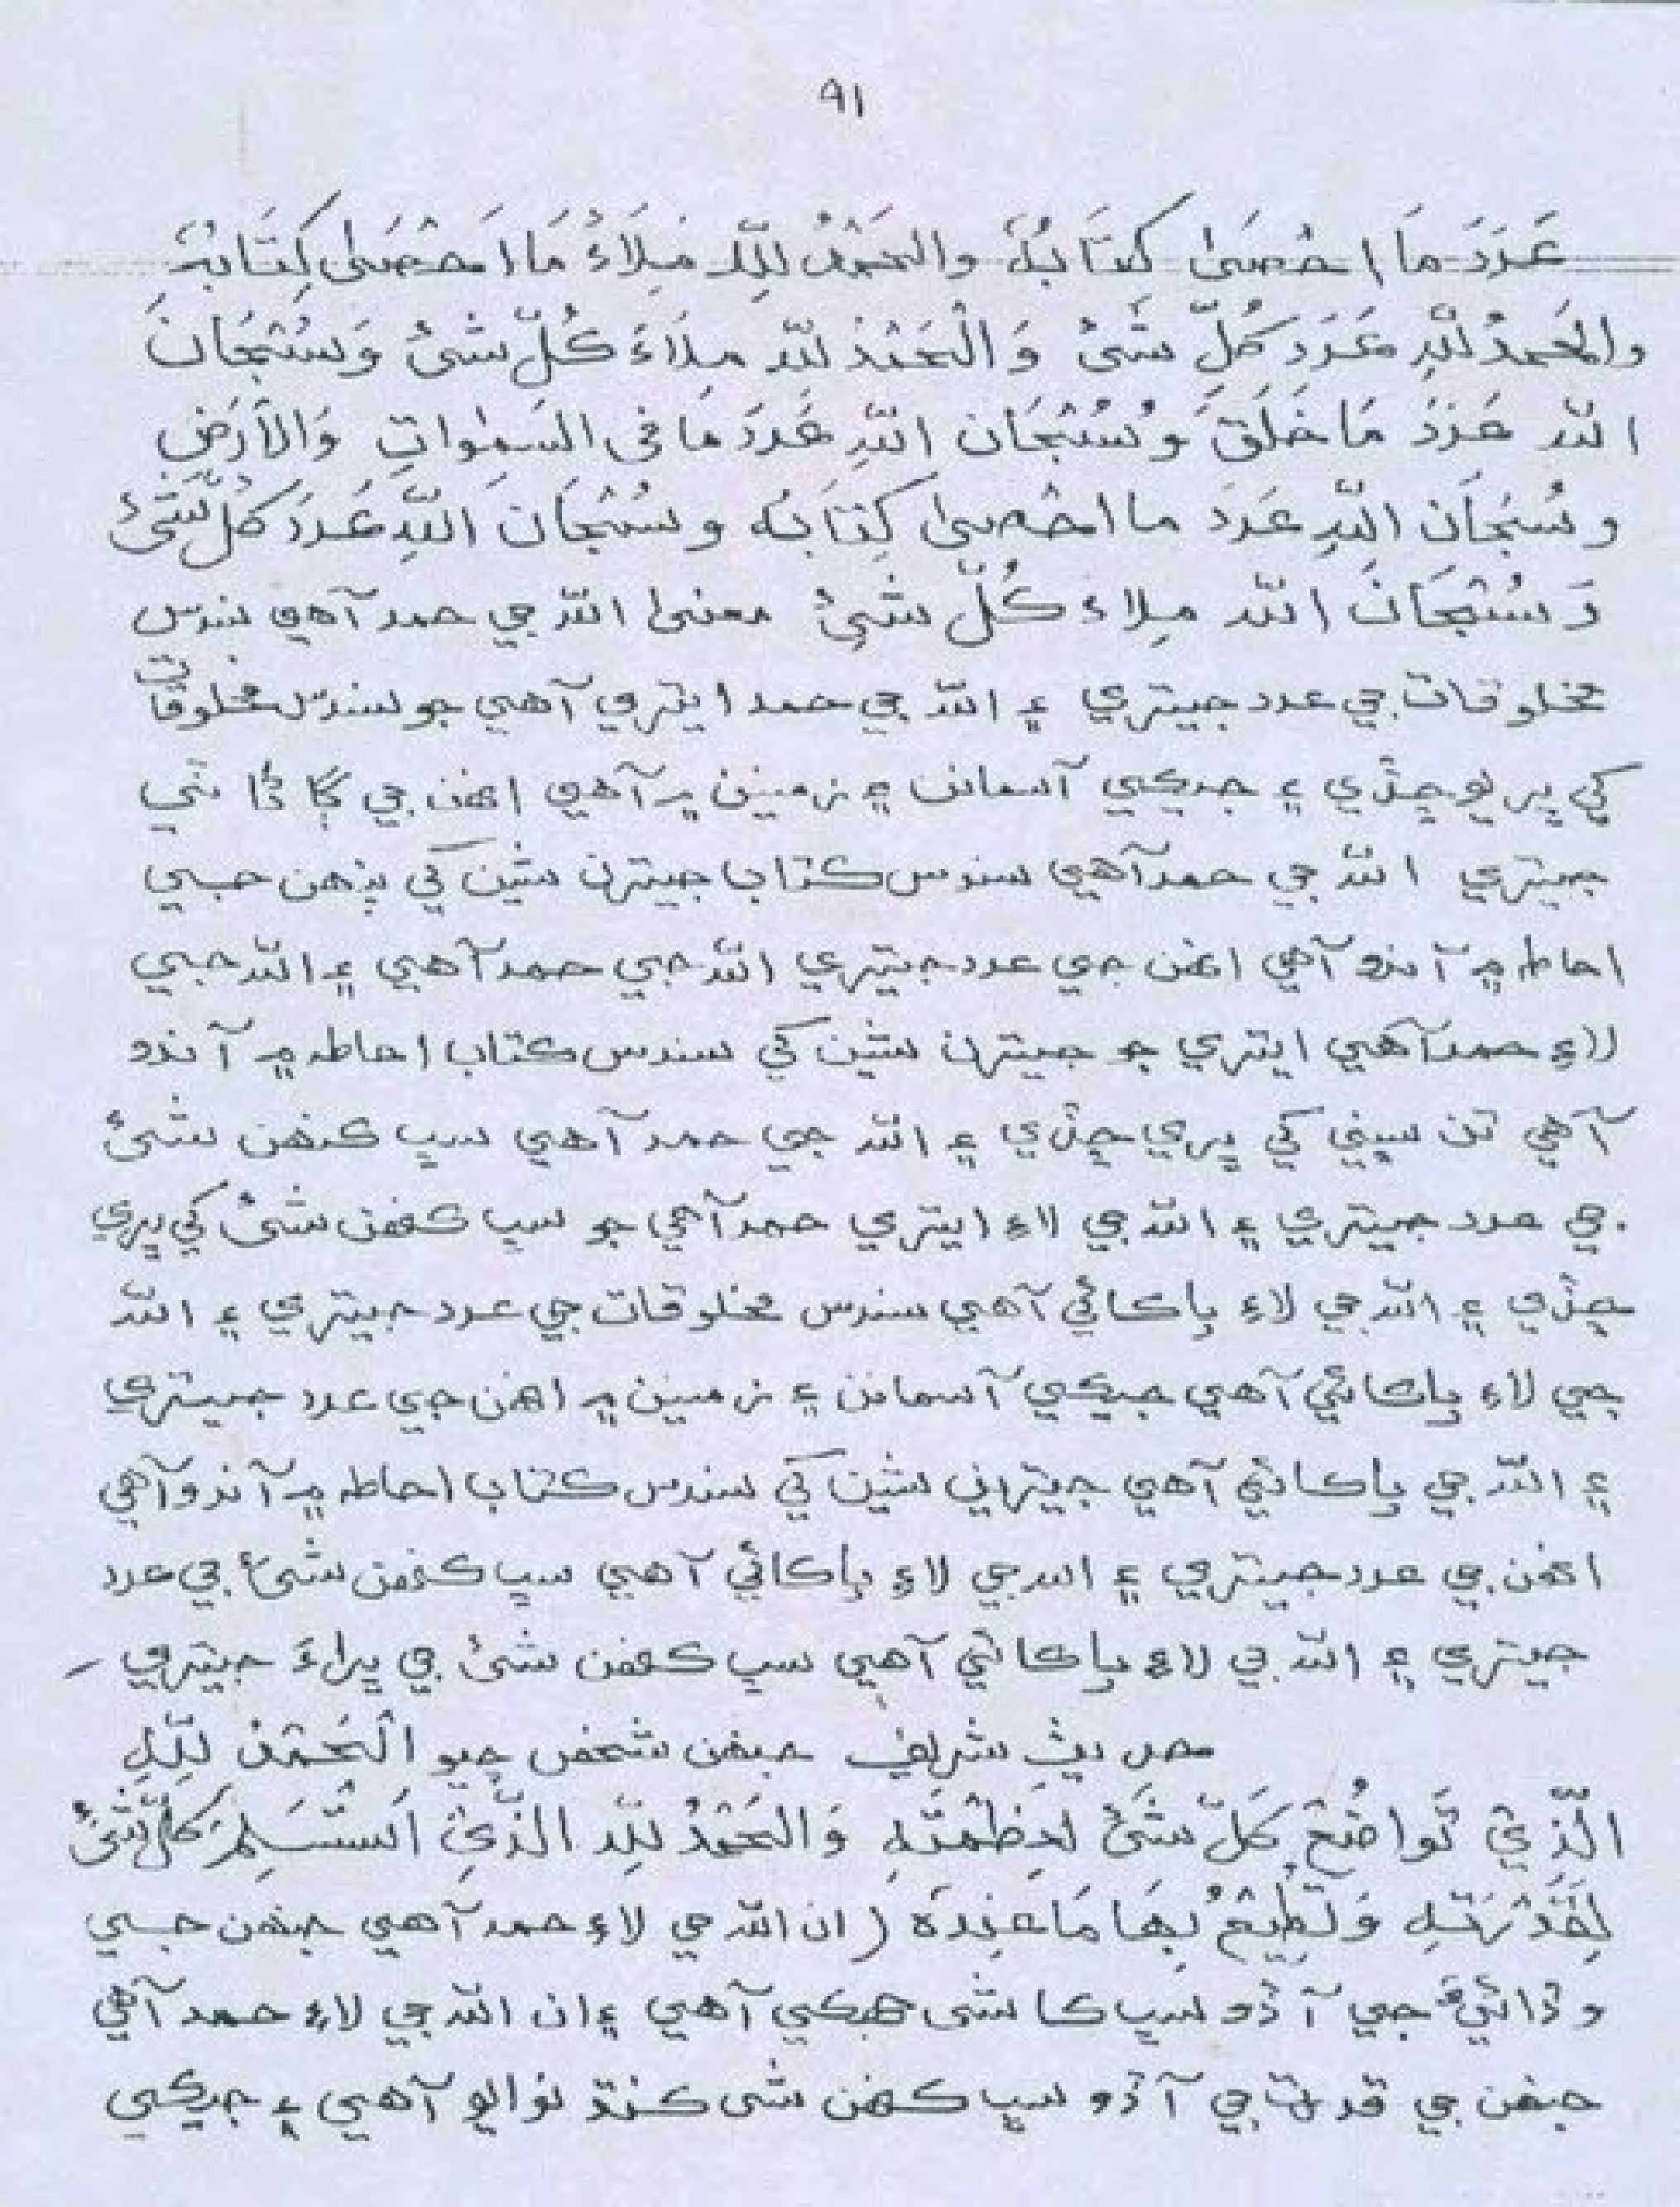 ٩١
عَدَدَ مَا احْصىٰ كِتَابُهٗ والحَمْدُ لِلّٰهِ مِلَاءُ مَا اَحْصَىٰ كِتَابُهٗ
والحَمدُ لِلّٰهِ عَدَدَ كُلِّ شَئ وَالْحَمْدُ لِلّٰهِ مِلَاءَ كُلِّ شئ وَسُبْحَانَ
اللّٰه عَدَدَ مَا خَلَقَ وَسُبْحَان اللّٰهِ عَدَدَ مَا في السَمٰواتِ وَالاَرَضِ
و سُبحَان اللّٰهِ عَدَدَ ما احْصىٰ كِتَابُه و سُبْحَانَ اللّٰهِ عَدَدَ كُلِّ شَئ
وَ سُبْحَانَ اللّٰه مِلاءَ كُلِّ شَئ معنىٰ اللّٰه جي حمد آهي سندس
مخلوقات جي عدد جيتري ۽ اللّٰه جي حمد ايتري آهي جو سندس مخلوقات
کي ڀر يو ڇڏي ۽ جيڪي آسمانن ۽ زمينن ۾ آهي انهن جي ڳاڻا ٽي
جيتري اللّٰه جي حمد آهي سندس ڪتاب جيترن شين کي پنهن جي
احاطه ۾ آندو آهي انهن جي عدد جيتري اللّٰه جي حمد آهي ۽ اللّٰه جي
لاءِ حمد آهي ايتري جو جيترن شين کي سندس ڪتاب احاطه ۾ آندو
آهي تن سڀني کي ڀري ڇڏي ۽ اللّٰه جي حمد آهي سڀ ڪنهن شئ
جي عدد جيتري ۽ اللّٰه جي لاءِ ايتري حمد آهي جو سڀ ڪنهن شئ کي ڀري
ڇڏي ۽ اللّٰه جي لاءِ پاڪائي آهي سندس مخلوقات جي عدد جيتري ۽ اللّٰه
جي لاءِ پاڪائي آهي جيڪي آسمانن ۽ زمينن ۾ اهن جي عدد جيتري
۽ اللّٰه جي پاڪائي آهي جيتراني شين کي سندس ڪتاب احاطه ۾ آندو آهي
انهن جي عدد جيتري ۽ الله جي لاءِ پاڪائي آهي سڀ ڪنهن شئ جي عدد
جيتري ۽ اللّٰه جي لاءِ پاڪائي آهي سڀ ڪنهن شئ جي ڀراءَ جيتري -
حديث شريف جنهن شخص چيو الْحَمْدُ لِلّٰهِ
الَّذِي تَواضَعَ كُلّ شَئ لعَظْمَتِهِ وَالحَمْدُ لِلّٰهِ الَّذِي اَسْتَسَلِمَ كُلّ شَئ
لِقُدْرَتِهِ وَلَطِيعُ بِهَا مَا عِندَهَ ( ان اللّٰه جي لاءِ حمد آهي جنهن جي
وڏائي جي آڏو سڀ ڪا شي هيڪي آهي ۽ ان اللّٰه جي لاءِ حمد آهي
جنهن جي قدرت جي آڏو سڀ ڪنهن شي ڪنڌ نوايو آهي ۽ جيڪي